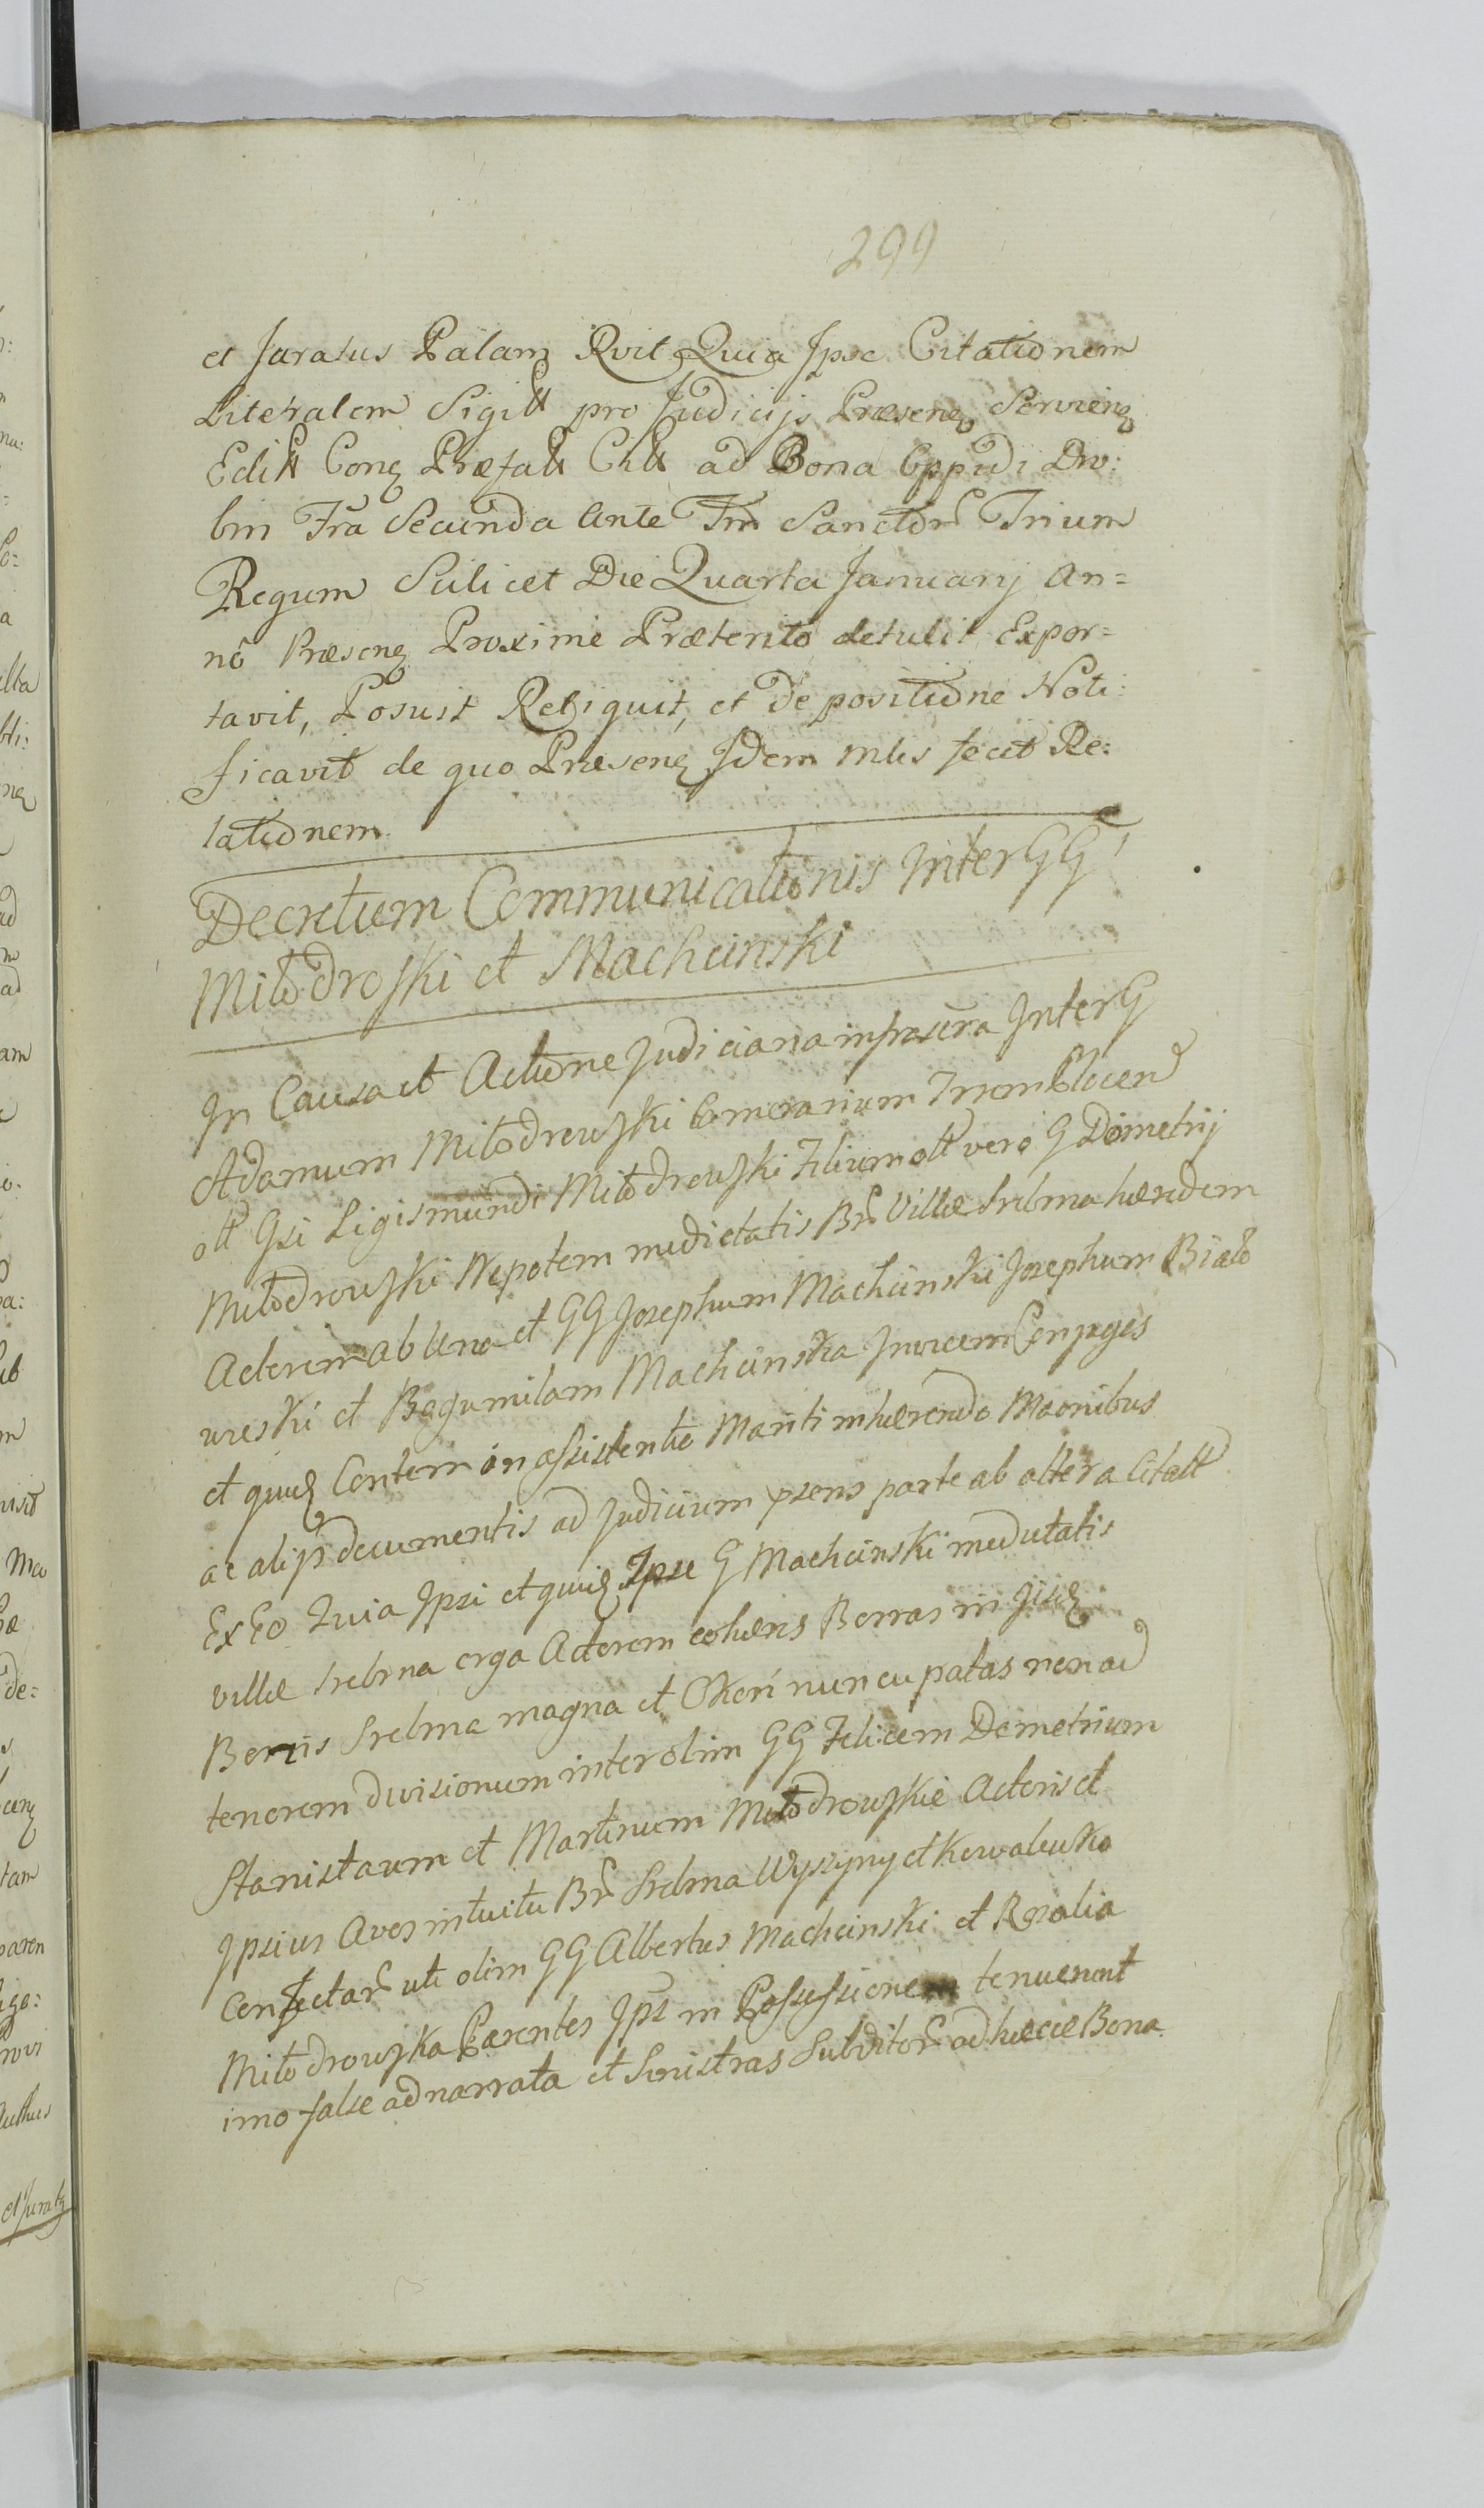 299
et Juratus Palam Rvit Quia Ipse Citationem
Literalem Sigill pro Judicijs Præsenꝫ Servienꝫ
Editt Conꝫ Præfatt Citt ad Bona Oppidi Dro:
bin Fra Secunda Ante Fm Sanctor Trium
Regum Scilicet Die Quarta Januarij An=
no Præsenꝫ Proxime Præterito detulit Expor=
tavit, Posuit Reliquit, et De positione Noti:
ficavit de quo Præsenꝫ Idem Mlis fecit Re:
lationem.
Decretum Communicationis Inter GG
Miłodroski et Machcinski
In Causa et Actione Judiciaria infrascra Inter G
Adamum Miłodrowski Camerarium Plocen
olt Gsi Sigismundi Miłodrowski Filium olt vero G Dimetrij
Miłodrowski Nepotem medietatis Br Villæ Srebrna hæredem
Actorem ab Una et GG Josephum Machcinski Josephum Biało
wieski et Bogumilam Machcinska Invicem Conjuges
et quidꝫ Contem in assistentia Mariti inhærendo Maonibus
ac alijs documentis ad Judicium psens parte ab altera Citatt
Ex Eo Quia Ipsi et quidꝫ Ipse G Machcinski medietatis
villæ Srebrna erga Actorem cohæres Borras in Jisdꝫ
Bonis Srebrna magna et Okoń nuncupatas non ad
tenorem divisionum inter olim GG Felicem Demetrium
Stanislaum et Martinum Miłodrowskie Actoris et
Ipsius Avos intuitu Br Srebrna Wyszyny et Kowalewko
Confectar uti olim GG Albertus Machcinski et Rosalia
Miłodrowska Parentes Ips in Possessionem tenuerunt
imo false ad narrata et Sinistras Subditor ad hæcce Bona